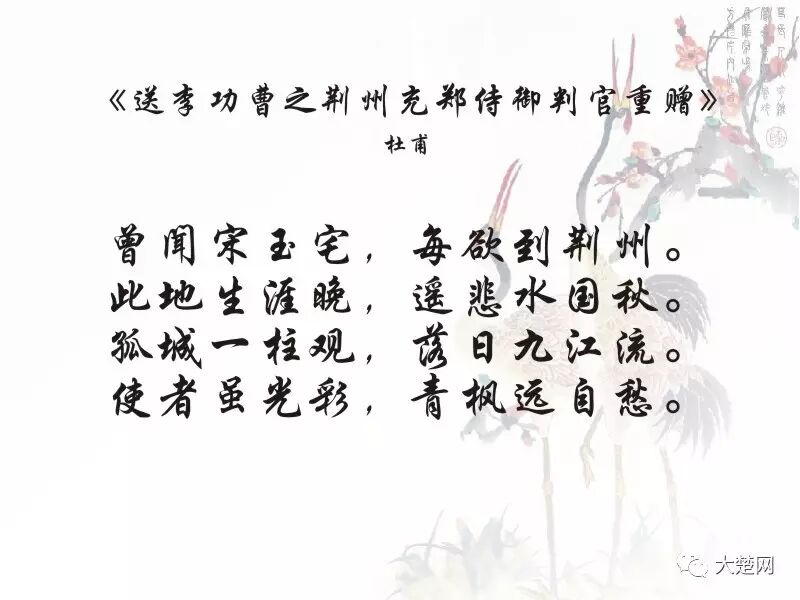 《送李功曹之荆州充郑侍御判官重赠》
杜甫
曾闻宋玉宅，每欲到荆州。
此地生涯晚，遥悲水国秋。
孤城一柱观，落日九江流。
使者虽光彩，青枫远自愁。
大楚网